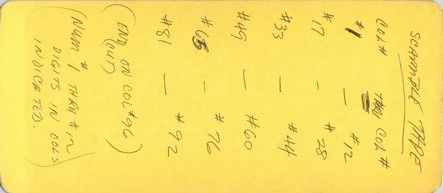 SCRAMBLE TAPE
COL# THRU COL #
#1 — #12
#17 — #28
#33 — #44
#49 — #60
#65 — #76
#81 — #92
(END ON COL #96)
(CUT)
(NUM # 1 THRU #12
DIGITS IN COLS
INDICATED).